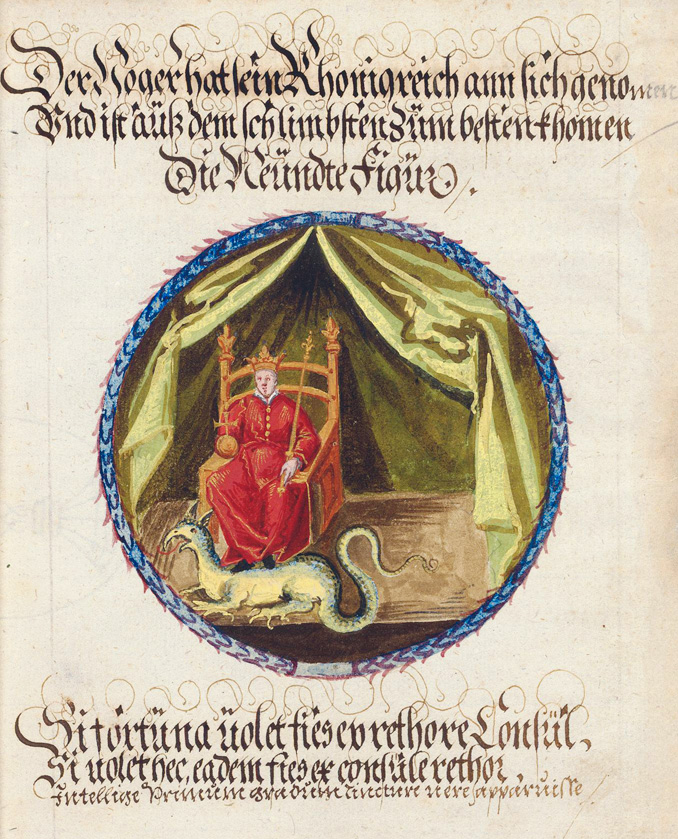 Der hat sein Khonigreich ann sich genomen
Vnd ist aüß dem schlimbsten Züm besten khomen
Die Neündte Figür.
Si fortüna üolet fies ex rethore Consül.
Si uolet hec, eadem fies ex consüle rethor.
Intellige Primum gradium tincture uere apparuisse